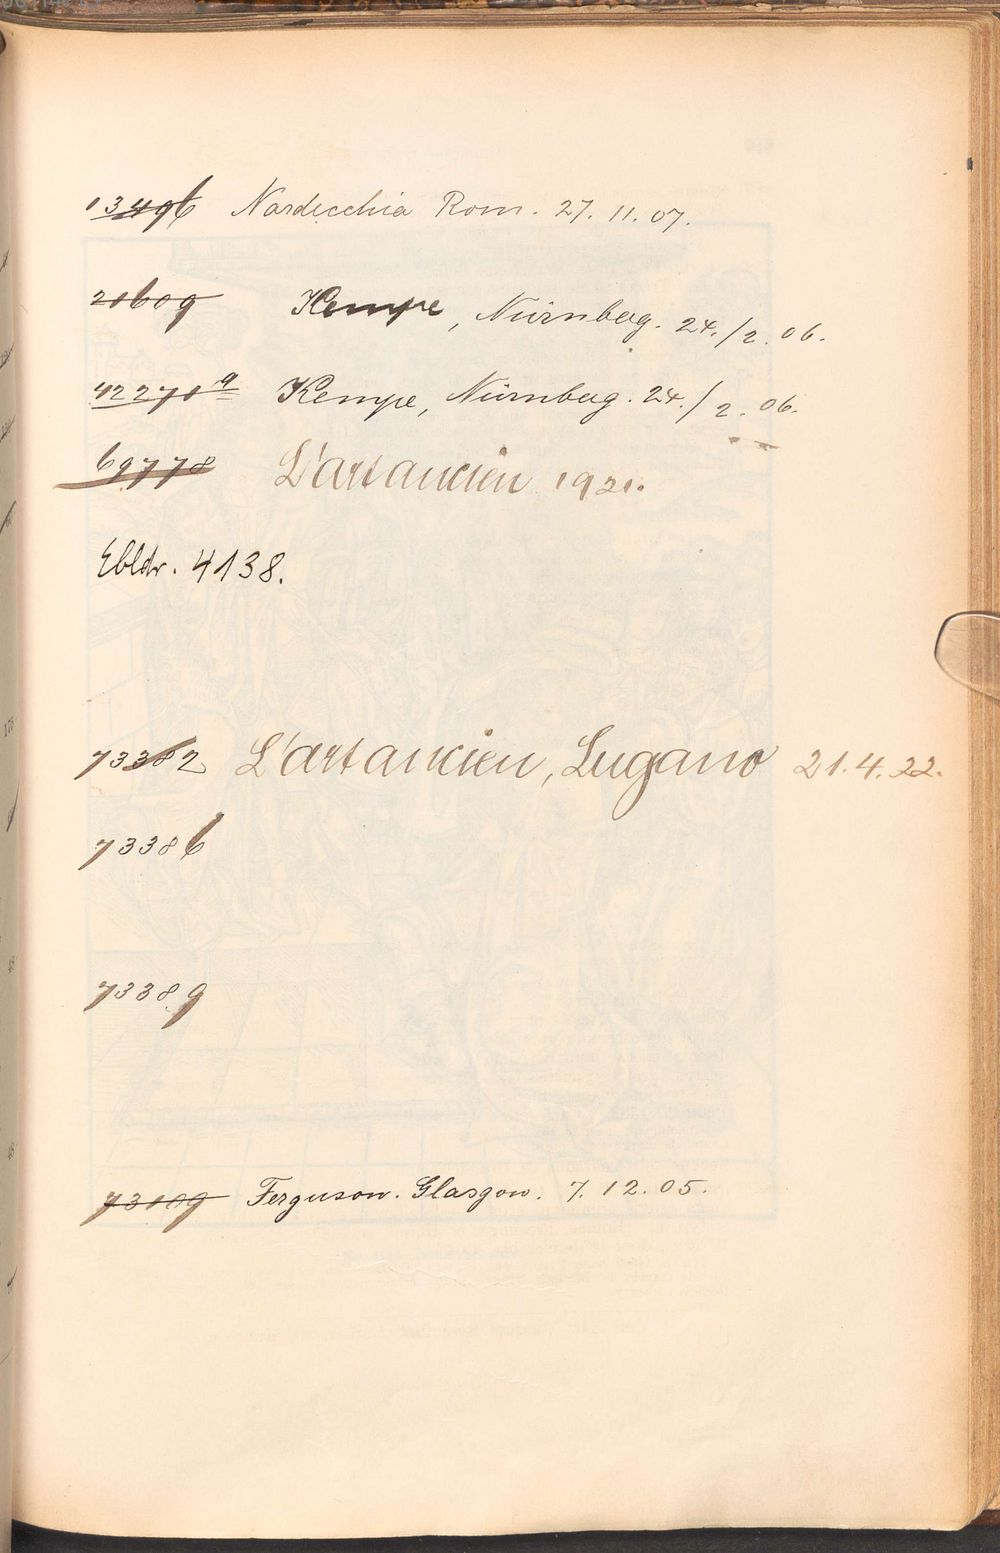 13496 Nardecchia Rom. 27. 11. 07.
20609 Kempe, Nürnberg. 24./2. 06.
42270a Kempe, Nürnberg. 24./2. 06.
69778 L'art ancien 1921.
Ebldr. 4138.
73382 L'art ancien, Lugano 21.4.22.
73386
73389
73109 Ferguson. Glasgow. 7. 12. 05.